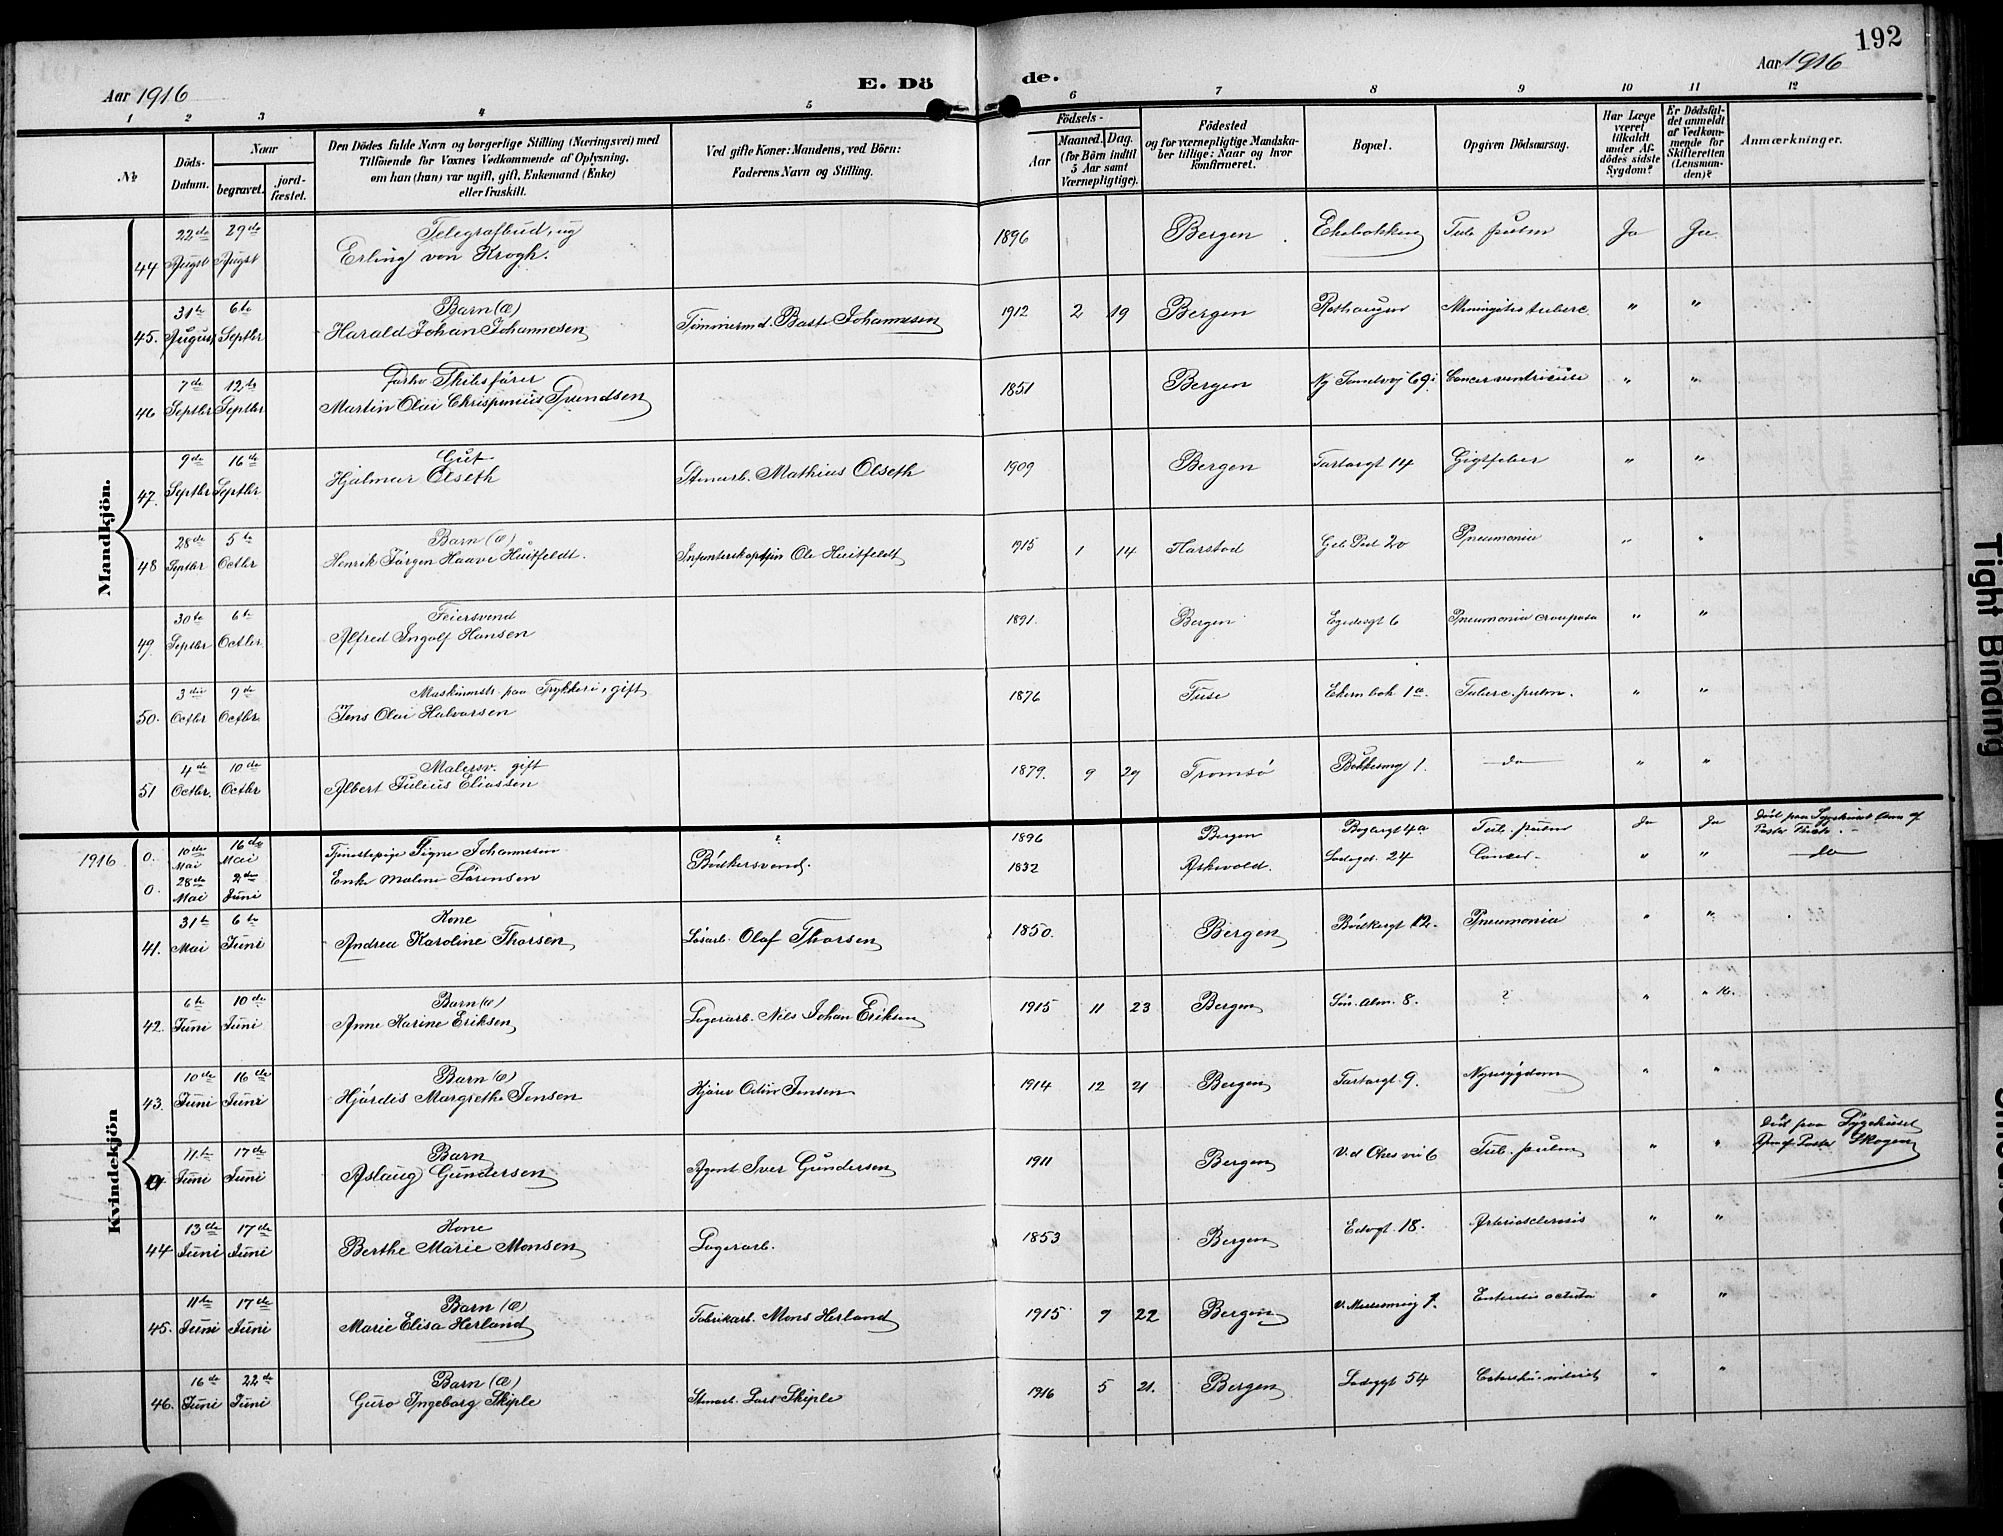 192
Aar 1916
E. Dö de.
Aar 1916
1 2 3 4 5 6 7 8 9 10 11 12
№
Döds-Datum.
Naar
begravet.
jord-fæstet.
Den Dödes fulde Navn og borgerlige Stilling (Næringsvei) med
Tilföiende for Voxnes Vedkommende af Oplysning,
om han (hun) var ugift, gift, Enkemand (Enke)
eller fraskilt.
Ved gifte Koner: Mandens, ved Börn:
Faderens Navn og Stilling.
Födsels-
Aar
Maaned. Dag.
(for Börn indtil
5 Aar samt
Værnepligtige).
Födested
og for værnepligtige Mandska-
ber tillige: Naar og hvor
konfirmeret.
Bopæl.
Opgiven Dödsaarsag.
Har Læge
været
tilkaldt
under Af-
dödes sidste
Sygdom?
Er Dödsfal-
det anmeldt
af Vedkom-
mende for
Skifteretten
(Lensman-
den)?
Anmærkninger.
Mandkjön.
22de 29de Telegrafbud, ug
44 Augst Augst Erling von Krogh. 1896 Bergen Tub. pulm Ja Ja
31te 6te Barn (æ)
45. August Septbr Harald Johan Johannesen Tömmermd. Baste Johannesen 1912 2 19 Bergen Rothaugen Meningitis tuberc " "
7de 12te
46 Septbr Septbr Martin Olai Chrispinius 1851 Bergen Cancer ventriculi " "
9de 16de Gut
47. Septbr Septbr Hjalmar Olseth Stenarb. Mathias Olseth 1909 Bergen Tartargt 14 Gigtfeber " "
28de 5te Barn (æ)
48 Septbr Octbr Henrik Jörgen Haave Huitfeldt. Infanterikaptein Ole Huitfeldt 1915 1 14 Harstad 20 Pneumonia " "
30te 6te Feiersvend
49. Septbr Octbr Alfred Ingolf Hansen 1891. Bergen Egedesgt 6 Pneumonia crouposa " "
3die 9de Maskinmstr. paa Trykkeri, gift
50. Octbr Octbr Jens Olai Halvorsen 1876 Fuse 1a. Tuberc. pulm. " "
4de 10de Malersv. gift
51 Octbr. Octbr Albert Julius Eliassen 1879. 9 29 Tromsö 1. do " "
Kvindekjön
1916 0. 10de Mai 16de Mai Tjenestepige Signe Johannesen ? 1896 Bergen 4a Tub. pulm Ja Ja Död paa
0. 28de Mai 2de Juni Enke Malene Sörensen Bödkersvend. 1832 Askvold. Ladegd. 24 Cancer " " do
31te 6te Kone
41. Mai Juni Andrea Karoline Thorsen Lösarb. Olaf Thorsen 1850. Bergen Bödkergt 12. Pneumonia " "
6te 10de Barn (æ)
42. Juni Juni Anne Karine Eriksen Lagerarb. Nils Johan Eriksen 1915 11 23 Bergen Sm. alm. 8. ? " "
10de 16de Barn (æ)
43. Juni Juni Hjördis Margrethe Jensen Kjörer Jensen 1914 12 21 Bergen Tartargt 9. Nyresygdom " "
11te 17de Barn
0 Juni Juni Aslaug Gundersen Agent Iver Gundersen 1911 Bergen 6 Tub. pulm " " Död paa Sygehuset
Skogen
13de 17de Kone
44 Juni Juni Berthe Marie Monsen Lagerarb. 1853 Bergen 18. Arteriosclerosis " "
11te 17de Barn (æ)
45. Juni Juni Marie Elisa Herland Fabrikarb. Mons Herland 1915 9 22 Bergen Enteritis acuta " "
16de 22de Barn (æ)
46. Juni Juni Guro Ingeborg Skiple Stenarb. Lars Skiple 1916 5 21. Bergen Ladegt 54 " "
Tight Binding